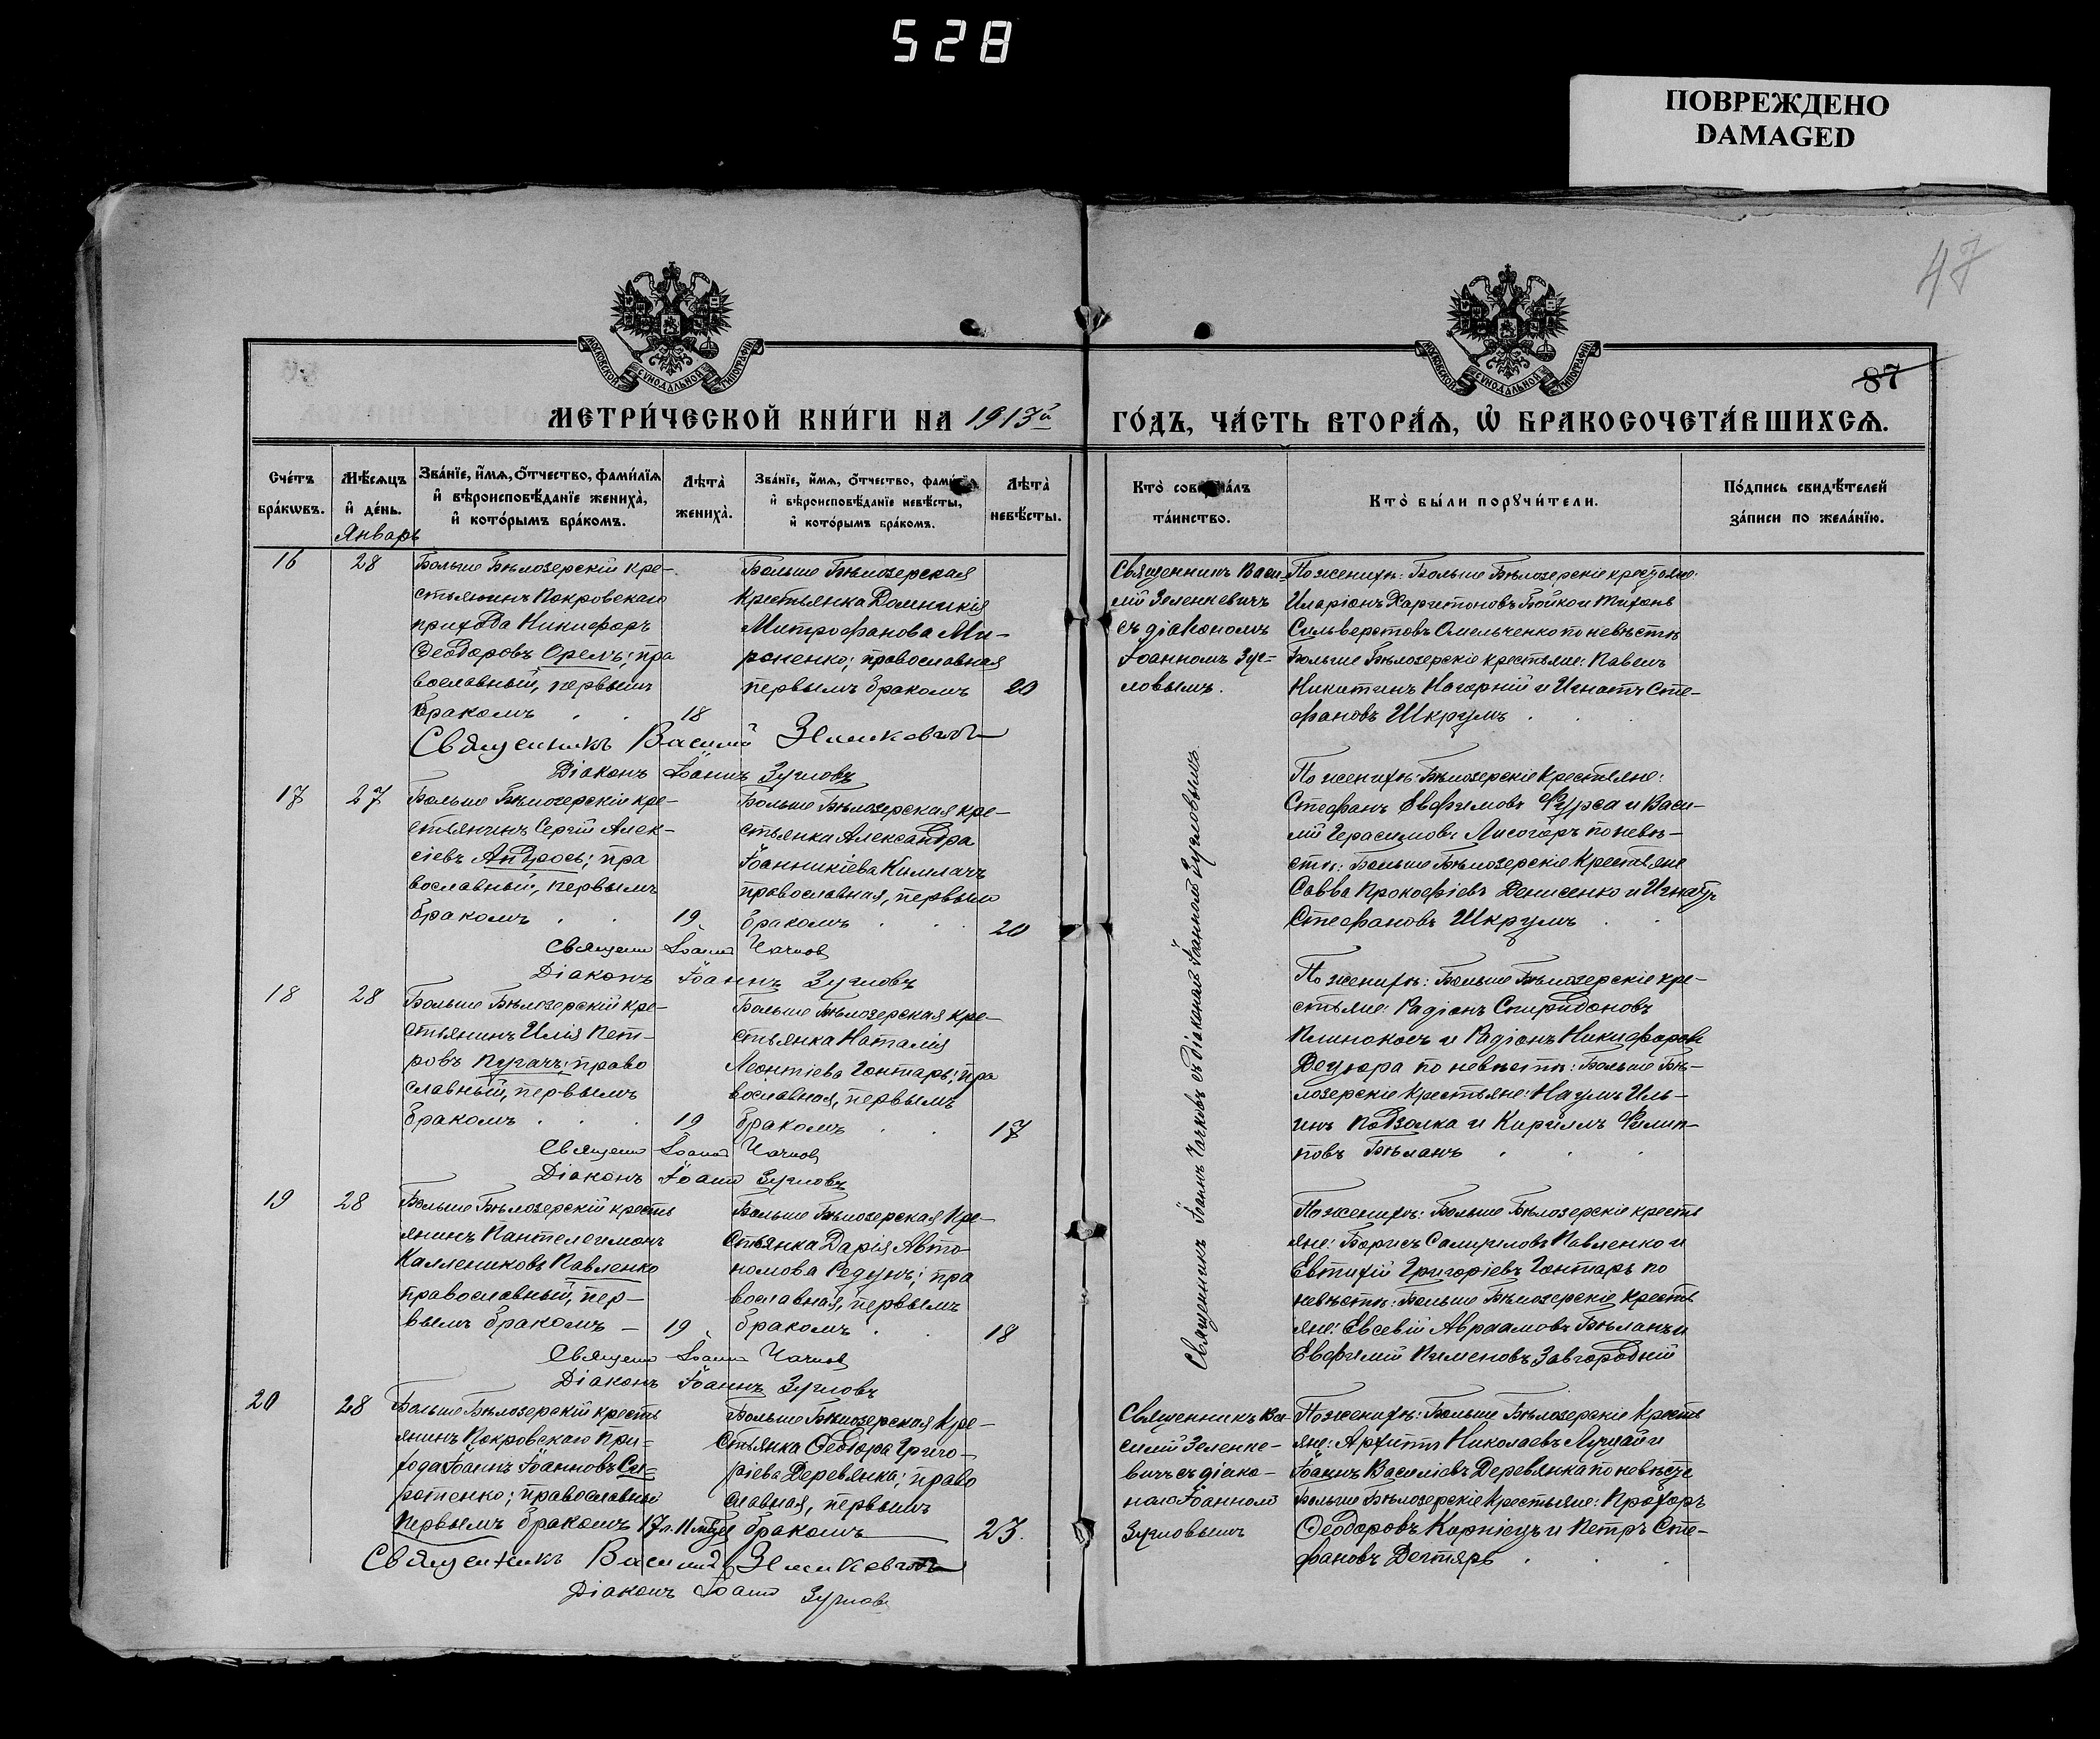 528
ПОВРЕЖДЕНО
DAMAGED
47
87
МОСКОВСКОЙ СѴНОДАЛЬНОЙ ТИПОГРАФІИ
МОСКОВСКОЙ СѴНОДАЛЬНОЙ ТИПОГРАФІИ
МЕТРИ́ЧЕСКОЙ КНИ́ГИ НА 1913й
ГО́ДЪ, ЧА́СТЬ ВТОРА́Ѧ, Ѡ҆ БРАКОСОЧЕТА́ВШИХСѦ.
Сче́тъ
бра́кωвъ.
Мѣ́сѧцъ
и҆ де́нь.
Январь
Зва́нїе, и҆́мѧ, о҆́тчество, фами́лїѧ
и҆ вѣроисповѣ́данїе жениха̀,
и҆ кото́рымъ бра́комъ.
Лѣта̀
жениха̀.
Зва́нїе, и҆́мѧ, о҆́тчество,
и҆ вѣроисповѣ́данїе невѣ́сты,
и҆ кото́рымъ бра́комъ.
Лѣта̀
невѣ́сты.
Кто̀
та́инство.
Кто̀ бы́ли порꙋчи́тели.
По́дпись свидѣ́телей
за́писи по жела́нїю.
16
28
Больше Бѣлозерскій кре-
стьянинъ Покровскаго
прихода Никифоръ
Ѳеодоровъ Орелъ; пра
вославный, первымъ
бракомъ
18
Больше Бѣлозерская
крестьянка Домникія
Митрофанова Ми-
роненко; православная
первымъ бракомъ
20
Священникъ Васи-
лій Зеленкевичъ
съ діакономъ
Іоанномъ Зуг-
ловымъ.
По женихѣ: Больше Бѣлозерскіе крестьяне:
Иларіонъ Харитоновъ Бойко и Тихонъ
Сильверстовъ Омельченко по невѣстѣ
Больше Бѣлозерскіе крестьяне: Павелъ
Никитинъ Нагорній и Игнатъ Сте-
фановъ Шкрумъ
Священникъ Василій Зеленкевичъ
Діаконъ Іоаннъ Зугловъ
17
27
Больше Бѣлозерскій кре-
стьянинъ Сергій Алек-
сіевъ Андрось; пра
вославный, первымъ
бракомъ
19
Больше Бѣлозерская кре-
стьянка Александра
Іоанникіева Килілачъ
православная, первымъ
бракомъ
20
Священникъ Іоаннъ Чачковъ съ діакономъ Іоанномъ Зугловымъ
По женихѣ: Бѣлозерскіе крестьяне:
Стефанъ Евфимовъ Фурса и Васи-
лій Герасимовъ Лисогоръ по невѣ-
стѣ: Больше Бѣлозерскіе крестьяне
Савва Прокофіевъ Денисенко и Игнатъ
Стефановъ Шкрумъ
Священ Іоаннъ Чачков
Діаконъ Іоаннъ Зугловъ
18
28
Больше Бѣлозерскій кре-
стьянинъ Илія Пет-
ровъ Пугачъ; право
славный, первымъ
бракомъ
19
Больше Бѣлозерская кре-
стьянка Наталія
Леонтіева Гонтарь; пра
вославная, первымъ
бракомъ
17
По женихѣ: Больше Бѣлозерскіе кре-
стьяне: Радіонъ Спиридоновъ
и Радіонъ Никифоров
по невѣстѣ: Больше Бѣ-
лозерскіе крестьяне: Наумъ Иль-
инъ Подзолка и Кириллъ Филип-
повъ Бѣланъ
Священ Іоанн Чачков
Діаконъ Іоанн Зугловъ
19
28
Больше Бѣлозерскій кресть
янинъ Пантелеимонъ
Каллениковъ Павленко
православный, пер-
вымъ бракомъ
19
Больше Бѣлозерская кре-
стьянка Дарія Авто-
номова Редунъ; пра
вославная, первымъ
бракомъ
18
По женихѣ: Больше Бѣлозерскіе кресть
яне: Борисъ Самуиловъ Павленко и
Евтихій Григоріевъ Гонтарь по
невѣстѣ: Больше Бѣлозерскіе кресть
яне: Евсевій Авраамовъ Бѣланъ и
Евфимій Пименовъ Завгородній
Священ Іоанн Чачков
Діаконъ Іоаннъ Зугловъ
20
28
Больше Бѣлозерскій кресть
янинъ Покровскаго при-
хода Іоаннъ Іоанновъ Си-
ротенко; православный
первымъ бракомъ
17 л. 11 мѣс
Больше Бѣлозерская кре-
стьянка Ѳеодора Григо-
ріева Деревянка; право
славная, первымъ
бракомъ
23.
Священникъ Ва-
силій Зеленке-
вичъ съ діако-
номъ Іоанномъ
Зугловымъ
По женихѣ: Больше Бѣлозерскіе кресть
яне: Архиппъ Николаевъ Лушай и
Іоаннъ Василіевъ Деревянка по невѣстѣ
Больше Бѣлозерскіе крестьяне: Прохоръ
Ѳеодоровъ Карпіецъ и Петръ Сте-
фановъ Дегтярь
Священникъ Василій Зеленкевичъ
Діаконъ Іоанн Зуглов